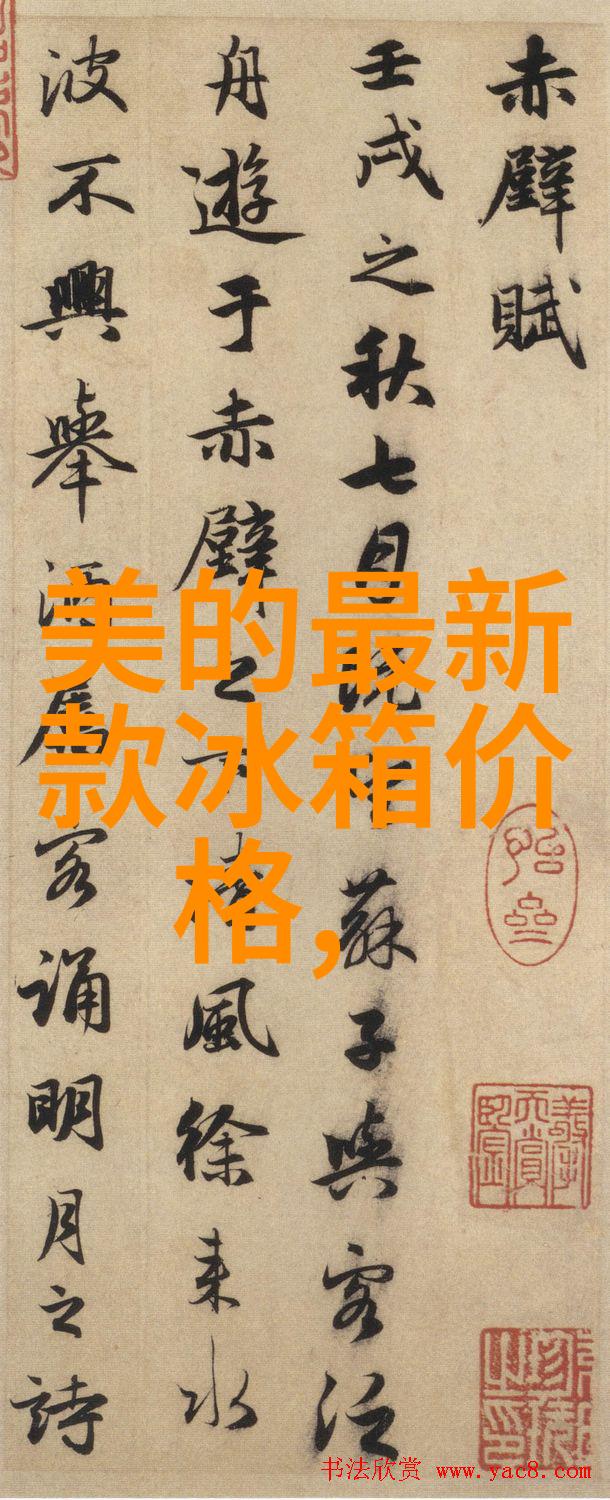 赤壁賦
壬戌之秋七月既望蘇子與客泛
舟遊于赤壁之下清風徐来水
波不興舉酒屬客誦明月之詩
美的最新
款冰箱价
格,
书法欣赏 www.yac8.com